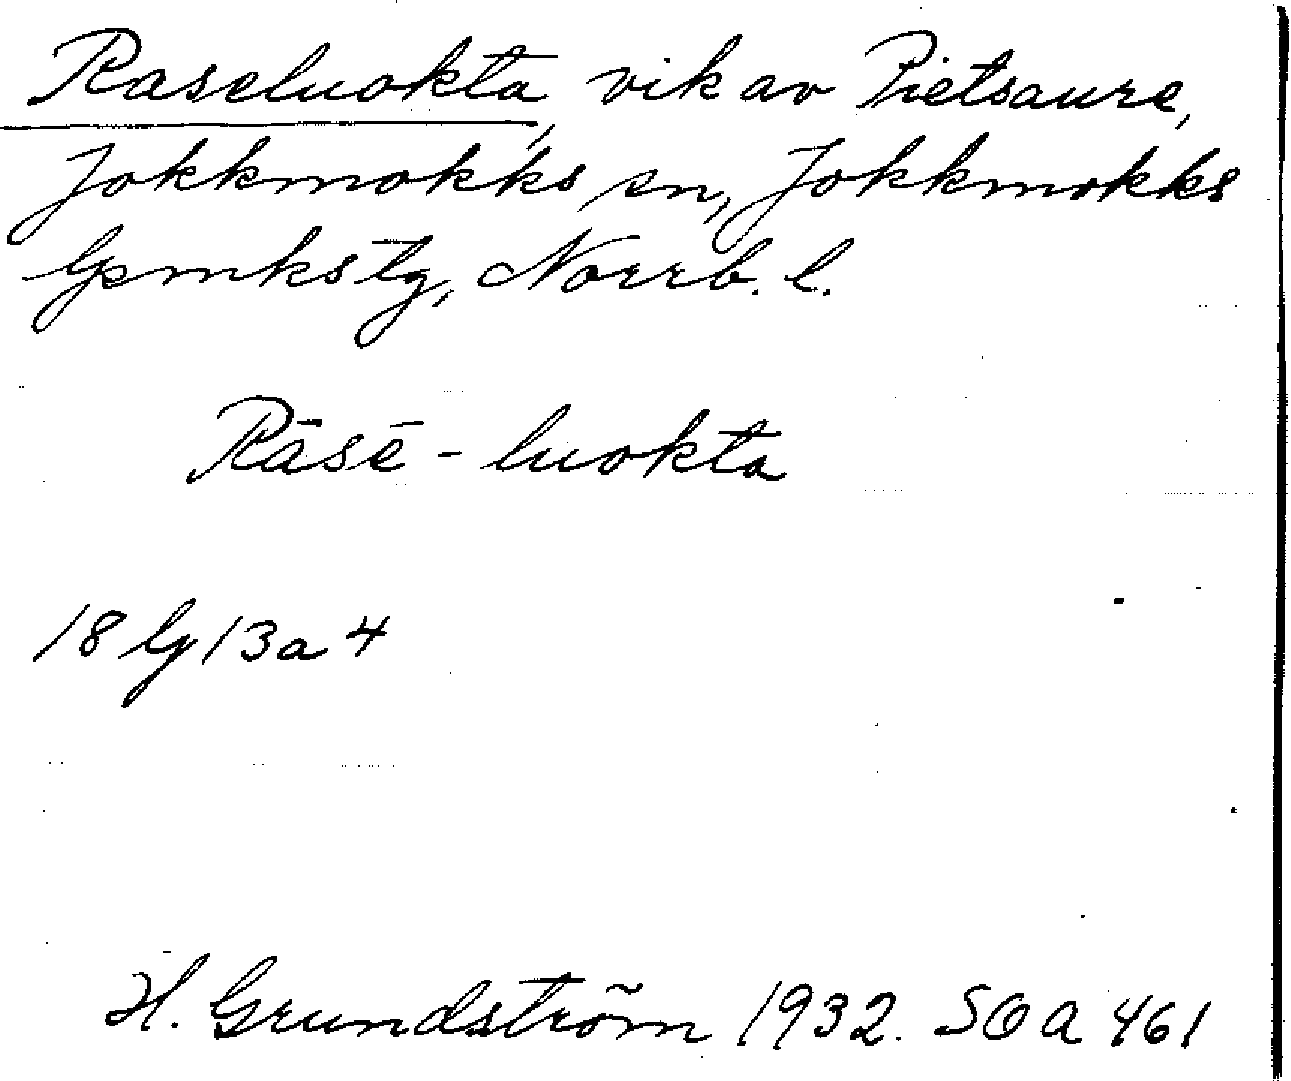 Raseluokta, vik av Pietsaure,
Jokkmokks sn, Jokkmokks
lpmkstg, Norrb. l.
Rāsē - luokta
18 G 13a 4
H. Grundström 1932. SOA 461